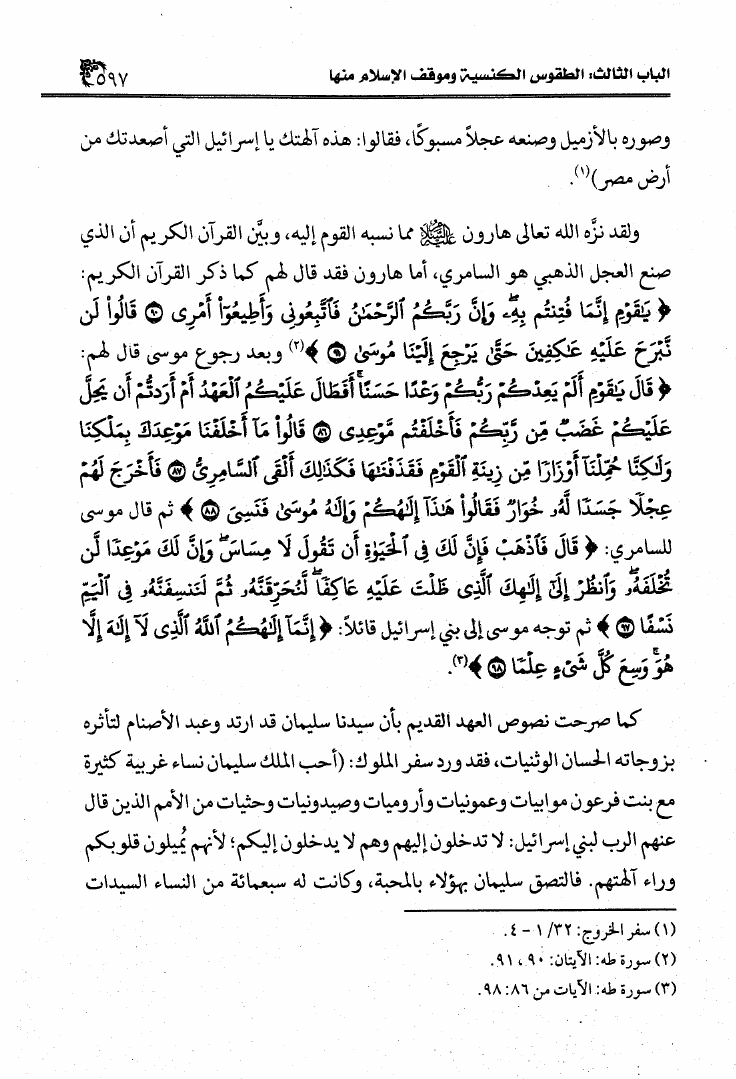 الباب الثالث: الطقوس الكنسية وموقف الإسلام منها
٥٩٧
وصوره بالأزميل وصنعه عجلاً مسبوكًا، فقالوا: هذه آلهتك يا إسرائيل التي أصعدتك من
أرض مصر)(١).
ولقد نزَّه الله تعالى هارون عليه السلام مما نسبه القوم إليه، وبيَّن القرآن الكريم أن الذي
صنع العجل الذهبي هو السامري، أما هارون فقد قال لهم كما ذكر القرآن الكريم:
﴿ يَٰقَوْمِ إِنَّمَا فُتِنتُم بِهِۦ ۖ وَإِنَّ رَبَّكُمُ ٱلرَّحْمَٰنُ فَٱتَّبِعُونِى وَأَطِيعُوٓا۟ أَمْرِى ۝٩٠ قَالُوا۟ لَن
نَّبْرَحَ عَلَيْهِ عَٰكِفِينَ حَتَّىٰ يَرْجِعَ إِلَيْنَا مُوسَىٰ ۝٩١ ﴾(٢) وبعد رجوع موسى قال لهم:
﴿ قَالَ يَٰقَوْمِ أَلَمْ يَعِدْكُمْ رَبُّكُمْ وَعْدًا حَسَنًا ۚ أَفَطَالَ عَلَيْكُمُ ٱلْعَهْدُ أَمْ أَرَدتُّمْ أَن يَحِلَّ
عَلَيْكُمْ غَضَبٌ مِّن رَّبِّكُمْ فَأَخْلَفْتُم مَّوْعِدِى ۝٨٦ قَالُوا۟ مَآ أَخْلَفْنَا مَوْعِدَكَ بِمَلْكِنَا
وَلَٰكِنَّا حُمِّلْنَآ أَوْزَارًا مِّن زِينَةِ ٱلْقَوْمِ فَقَذَفْنَٰهَا فَكَذَٰلِكَ أَلْقَى ٱلسَّامِرِىُّ ۝٨٧ فَأَخْرَجَ لَهُمْ
عِجْلًا جَسَدًا لَّهُۥ خُوَارٌ فَقَالُوا۟ هَٰذَآ إِلَٰهُكُمْ وَإِلَٰهُ مُوسَىٰ فَنَسِىَ ۝٨٨ ﴾ ثم قال موسى
للسامري: ﴿ قَالَ فَٱذْهَبْ فَإِنَّ لَكَ فِى ٱلْحَيَوٰةِ أَن تَقُولَ لَا مِسَاسَ ۖ وَإِنَّ لَكَ مَوْعِدًا لَّن
تُخْلَفَهُۥ ۖ وَٱنظُرْ إِلَىٰٓ إِلَٰهِكَ ٱلَّذِى ظَلْتَ عَلَيْهِ عَاكِفًا ۖ لَّنُحَرِّقَنَّهُۥ ثُمَّ لَنَنسِفَنَّهُۥ فِى ٱلْيَمِّ
نَسْفًا ۝٩٧ ﴾ ثم توجه موسى إلى بني إسرائيل قائلاً: ﴿ إِنَّمَآ إِلَٰهُكُمُ ٱللَّهُ ٱلَّذِى لَآ إِلَٰهَ إِلَّا
هُوَ ۚ وَسِعَ كُلَّ شَىْءٍ عِلْمًا ۝٩٨ ﴾(٣).
كما صرحت نصوص العهد القديم بأن سيدنا سليمان قد ارتد وعبد الأصنام لتأثره
بزوجاته الحسان الوثنيات، فقد ورد سفر الملوك: (أحب الملك سليمان نساء غربية كثيرة
مع بنت فرعون موابيات وعمونيات وأروميات وصيدونيات وحثيات من الأمم الذين قال
عنهم الرب لبني إسرائيل: لا تدخلون إليهم وهم لا يدخلون إليكم؛ لأنهم يُميلون قلوبكم
وراء آلهتهم. فالتصق سليمان بهؤلاء بالمحبة، وكانت له سبعمائة من النساء السيدات
(١) سفر الخروج: ٣٢/ ١ - ٤.
(٢) سورة طه: الآيتان: ٩٠، ٩١.
(٣) سورة طه: الآيات من ٨٦: ٩٨.